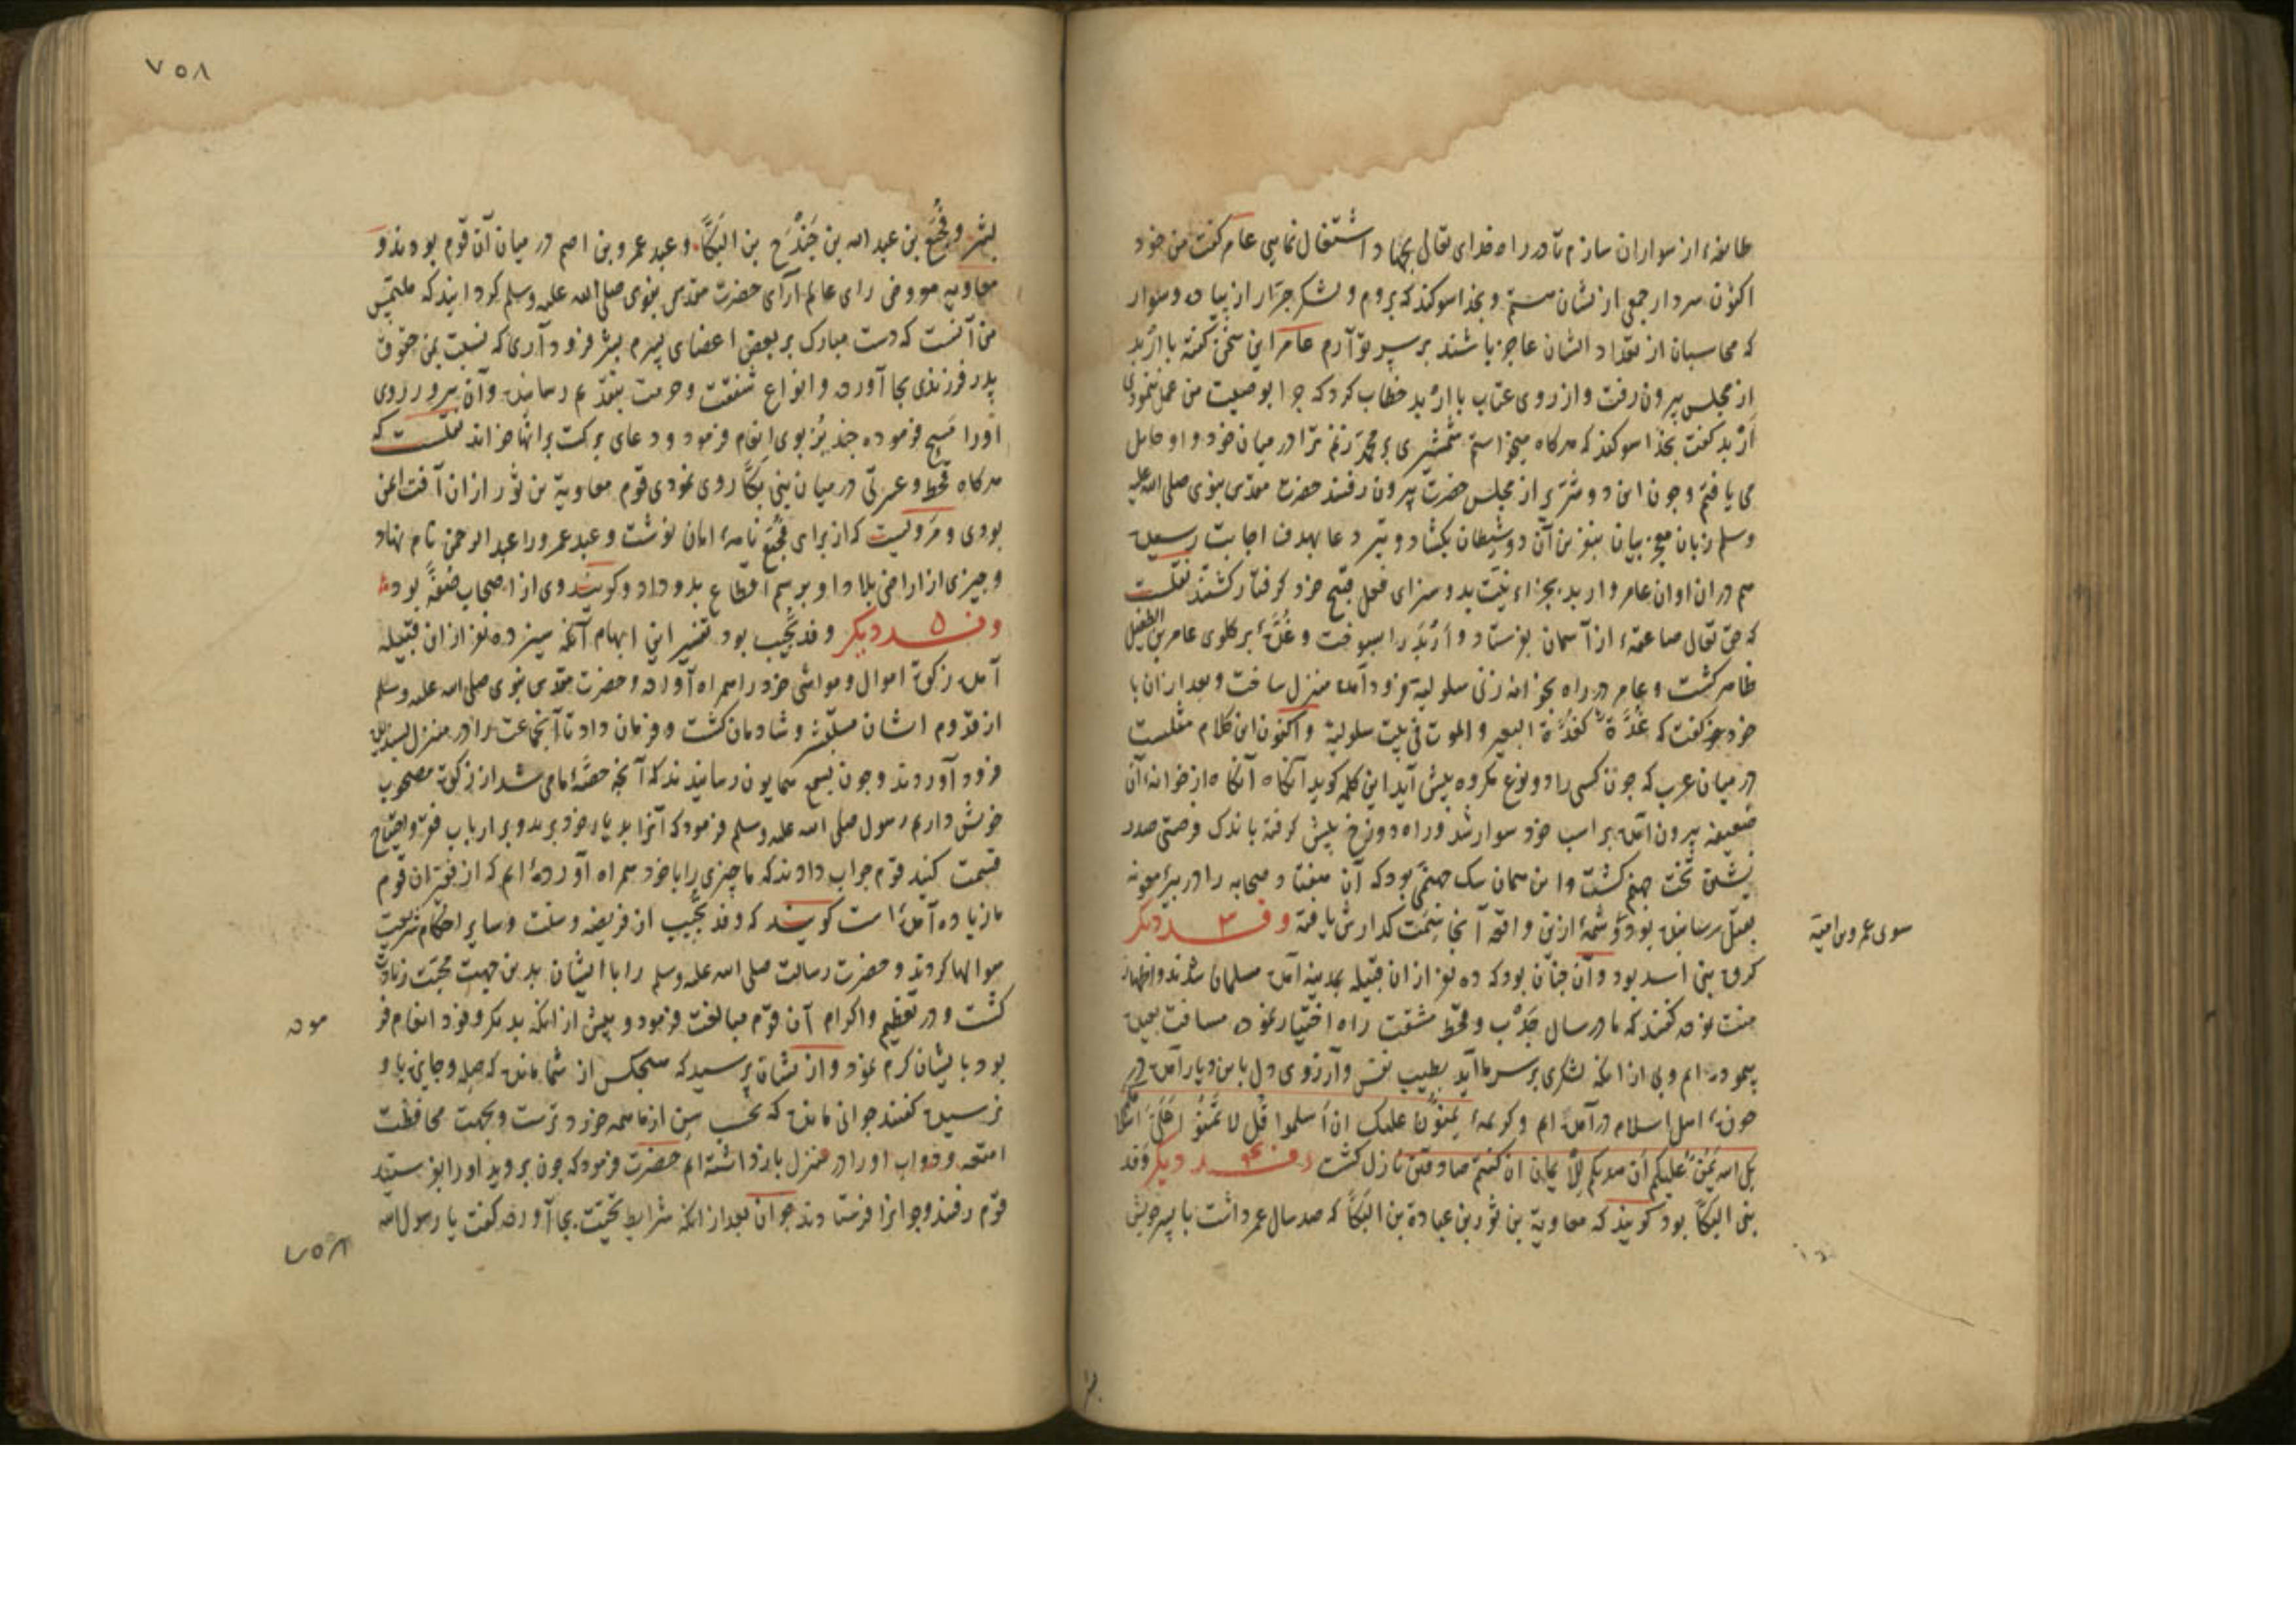 طایفهٔ از سواران سازم تا در راه خدای تعالی بجهاد اشتغال نمایی عامر کفت من خود
اکنون سردار جمعی از نشان هستم و بخدا سوکند که بروم و لشکر جرّار از پیاده و سوار
که محاسبان از تعداد ایشان عاجز باشند بر سر تو آرم عامر این سخن کفته با اربد
از مجلس بیرون رفت و از روی عتاب با اربد خطاب کرد که چرا بوصیت من عمل ننمودی
اربد کفت بخدا سوکند که هرکاه میخواستم شمشیری بر محمد زنم ترا در میان خود و او حایل
می یافتم و چون این دو شریر از مجلس حضرت بیرون رفتند حضرت مقدس نبوی صلی الله علیه
وسلم زبان معجز بیان بنفرین آن دو شیطان بکشاد و تیر دعا بهدف اجابت رسیده
هم دران اوان عامر و اربد بجزاء نیّت بد و سزای فعل قبیح خود کرفتار کشتند نقلست
که حق تعالی صاعقهٔ از آسمان بفرستاد و اربد را بسوخت و غدّهٔ بر کلوی عامر بن الطفیل
ظاهر کشت و عامر در راه بخانه زنی سلولیه فرود آمده منزل ساخت و بعد ازان با
خود میکفت که غُدَّة کغُدَّة البعیر والموت فی بیت سلولیة و اکنون این کلام مثلست
در میان عرب که چون کسی را دو نوع مکروه پیش آید این کلمه کوید آنکاه از خوانهٔ آن
ضعیفه بیرون آمده بر اسب خود سوار شد و راه دوزخ پیش کرفته باندک فرصتی صدر
نشین تخت جهنم کشت و این همان سک جهنمی بود که آن هفتاد صحابه را در بیر معونه
بقتل رسانیده بود و شمهٔ ازین واقعه آنجا سمت کذارش یافته وفد ۳ دیکر
سوی عمرو بن امیّة
کروه بنی اسد بود و آن چنان بود که ده نفر ازان قبیله بمدینه آمده مسلمان شدند و اظهار
منت نموده کفتند که ما در سال جَدْب و قحط مشقت راه اختیار نموده مسافت بعیده
پیموده ایم و بی از آنکه لشکری بر سر ما آید بطیب نفس و آرزوی دل باین دیار آمده در
حوزهٔ اهل اسلام درآمده ایم و کریمهٔ یمنّون علیک ان اسلموا قل لا تمنّوا علیّ اسلامکم
بل الله یمنّ علیکم أن هدیکم للایمان ان کنتم صادقین نازل کشت وفد دیکر وفد
بنی البکّا بود کویند که معاویة بن ثور بن عبادة بن البکّا که صد سال عمر داشت با پسر خویش
۷۵۸
بشر و فُجَیع بن عبد الله بن جُنْدُح بن البکّا و عبد عمرو بن اصم در میان آن قوم بودند و
معاویه معروض رای عالم آرای حضرت مقدس نبوی صلی الله علیه وسلم کردانید که ملتمس
من آنست که دست مبارک بر بعض اعضای پسرم بشر فرود آری که نسبت بمن حقوق
پدر فرزندی بجا آورده و انواع شفقت و حرمت بتقدیم رسانیده و آن سرور روی
اورا مسح فرموده چند بُز بوی انعام فرمود و دعای برکت بر آنها خواند نقلست که
هرکاه قحط و عسرتی در میان بنی بکّا روی نمودی قوم معاویة بن ثور ازان آفت ایمن
بودی و مرویست که از برای فجیع نامهٔ امان نوشت و عبد عمرو را عبد الرحمن نام نهاد
و چیزی از اراضی بلاد او برسم اقطاع بدو داد و کویند وی از اصحاب صُفّه بود
وفد ۵ دیکر وفد تُجیب بود تفسیر این ابهام آنکه سیزده نفر ازان قبیله
آمده زکوة اموال و مواشی خود را همراه آورده و حضرت مقدس نبوی صلی الله علیه وسلم
از قدوم ایشان مستبشر و شادمان کشت و فرمان داد تا آنجماعت را در منزل پسندیده
فرود آوردند و چون بسمع همایون رسانیدند که آنچه حصهٔ ما می شد از زکوة مصحوب
خویش داریم رسول صلی الله علیه وسلم فرمود که آنرا بدیار خود برید و بر ارباب فقر و احتیاج
قسمت کنید قوم جواب دادند که ما چیزی را با خود همراه آورده ایم که از فقیران قوم
ما زیاده آمده است کویند که وفد تجیب از فریضه و سنت و سایر احکام شریعت
سوالها کردند و حضرت رسالت صلی الله علیه وسلم را با ایشان بدین جهت محبت زیادت
کشت و در تعظیم و اکرام آن قوم مبالغت فرمود و بیش از آنکه بدیکر وفود انعام فر
موده
بود بایشان کرم نمود و از نشان پرسید که هیچکس از شما مانده که صله و جایزه باو
نرسیده کفتند جوانی مانده که بحسب سن از ما همه خردترست و بجهت محافظت
امتعه و دواب او را در منزل بازداشته ایم حضرت فرمود که چون بروید اورا بفرستید
قوم رفتند و جوانرا فرستادند جوان بعد از آنکه شرایط تحیّت بجا آورده کفت یا رسول الله
۷۵۸